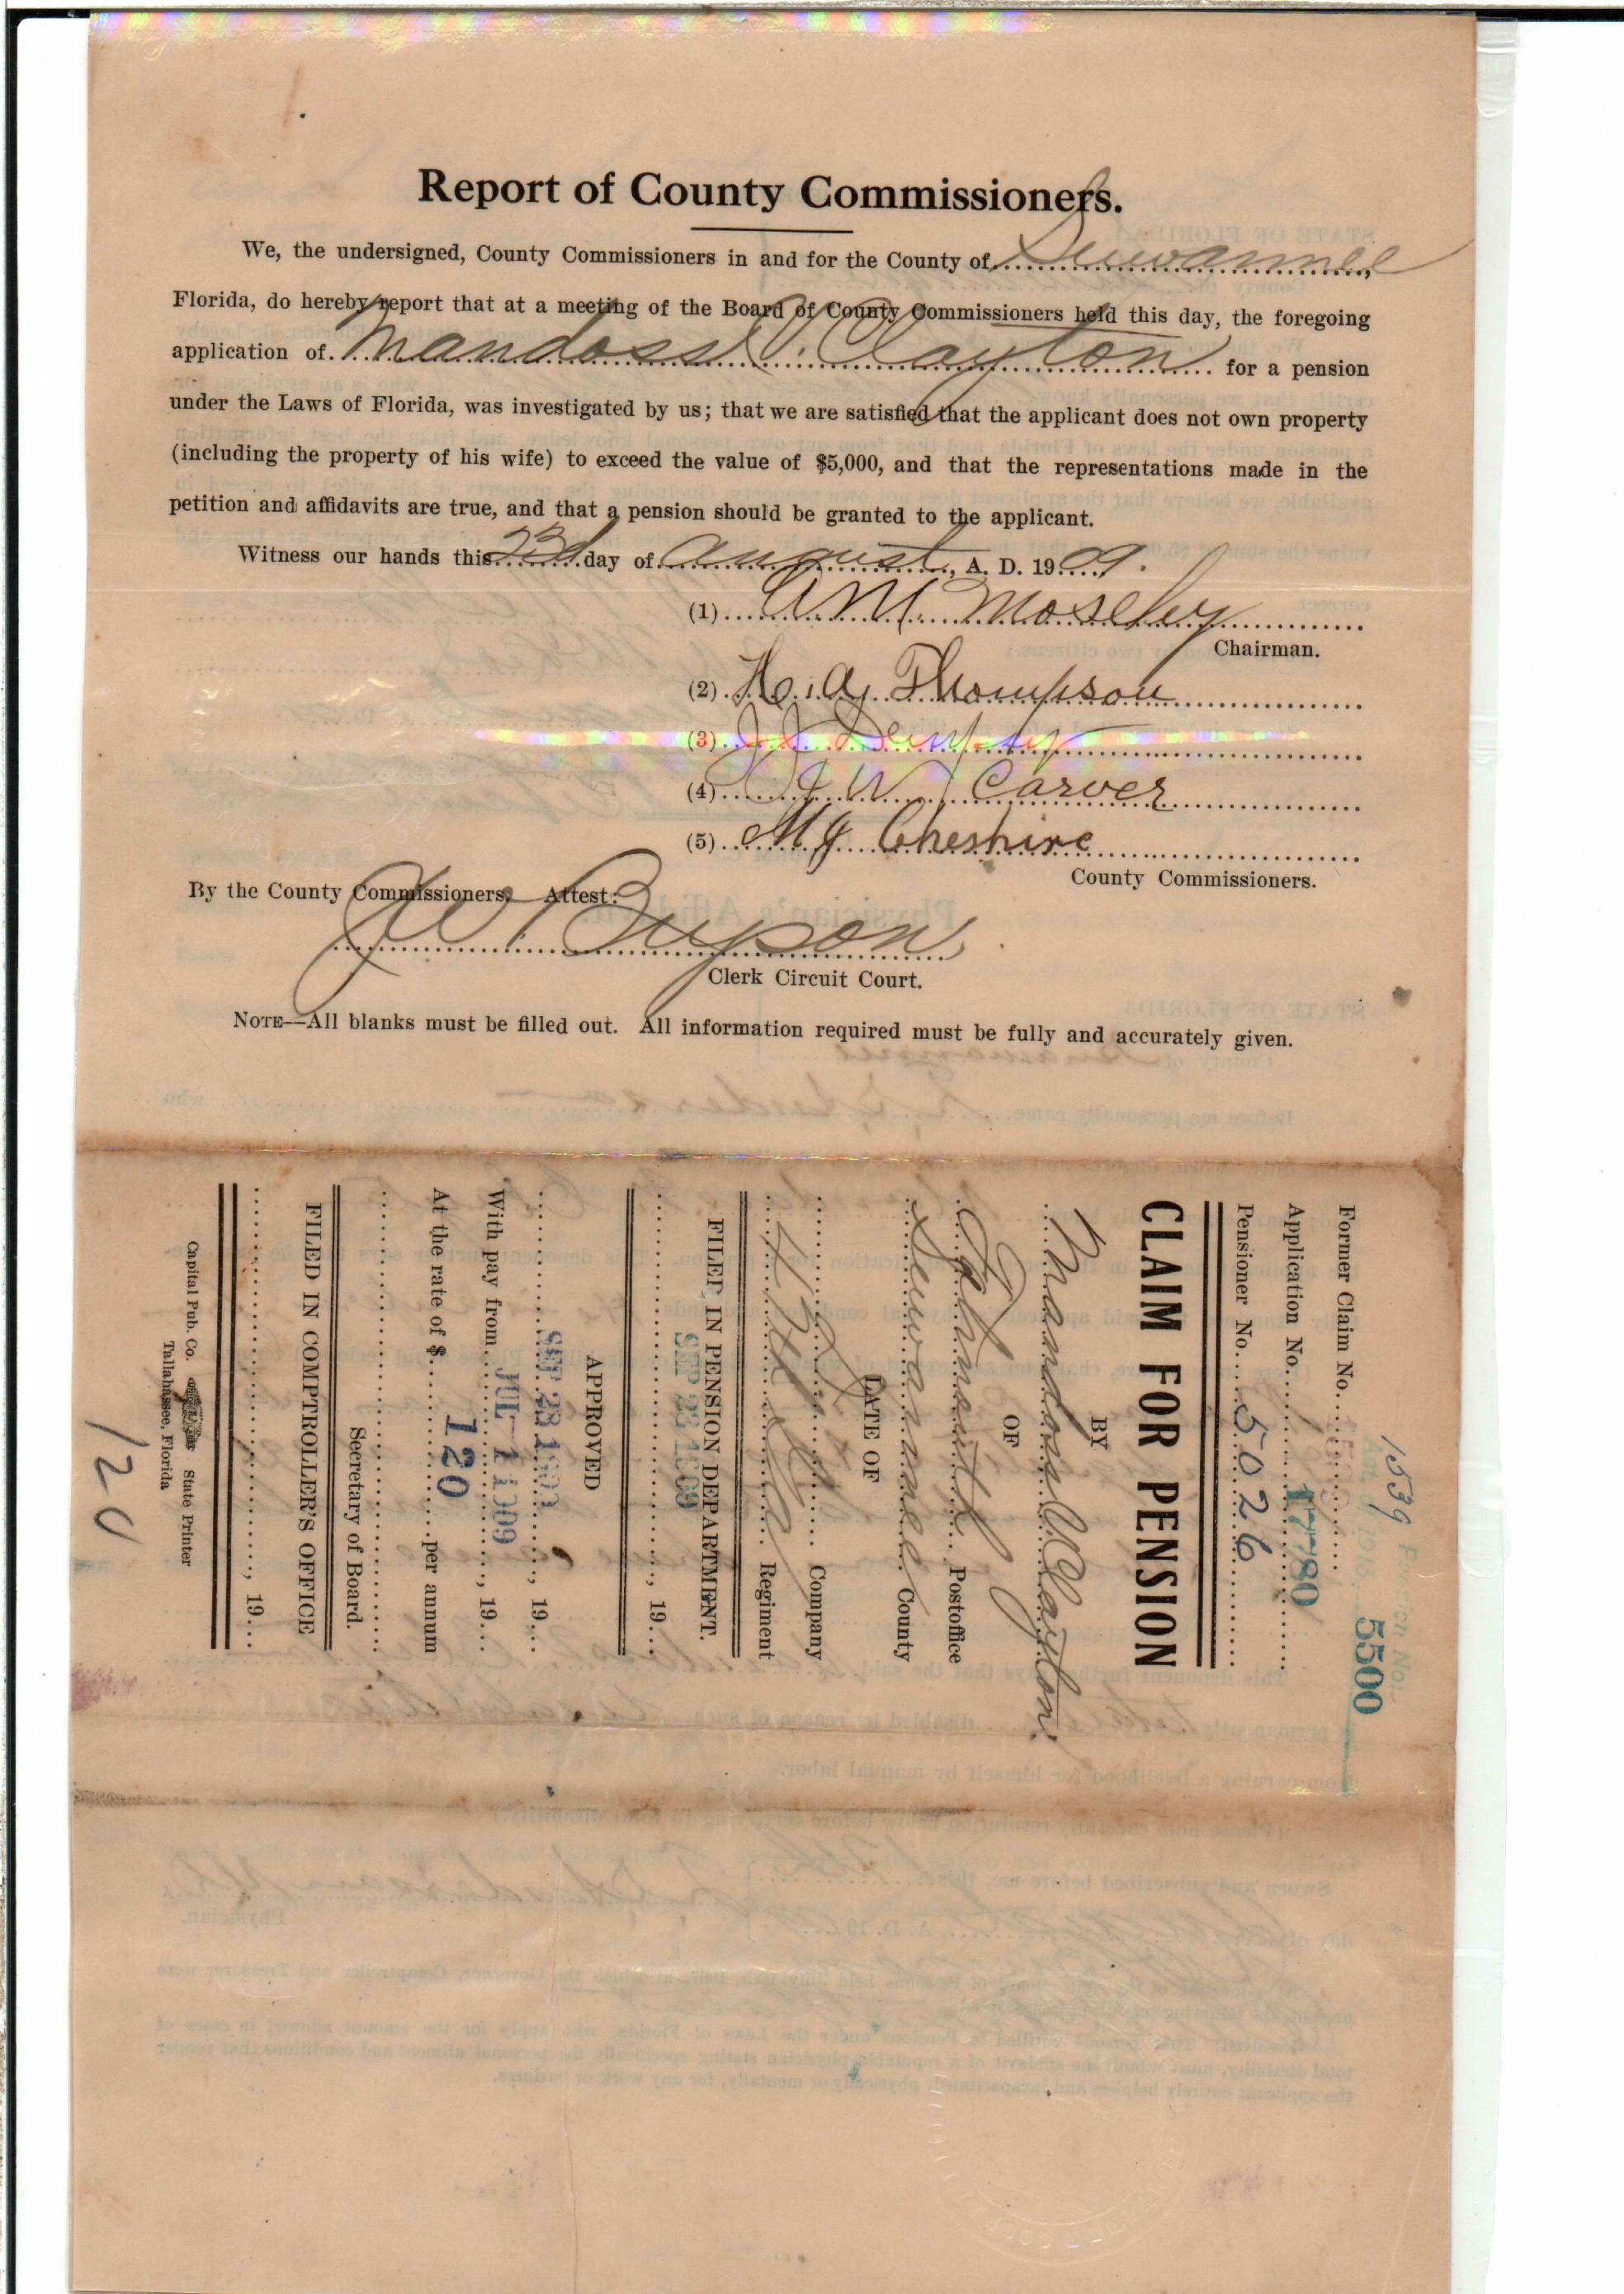 Report of County Commissioners.
We, the undersigned, County Commissioners in and for the County of Suwannee,
Florida, do hereby report that at a meeting of the Board of County Commissioners held this day, the foregoing
application of Mandoss V. Clayton for a pension
under the Laws of Florida, was investigated by us; that we are satisfied that the applicant does not own property
(including the property of his wife) to exceed the value of $5,000, and that the representations made in the
petition and affidavits are true, and that a pension should be granted to the applicant.
Witness our hands this 23d day of August, A. D. 1909.
(1) A M Moseley
Chairman.
(2) H. A. Thompson
(3) J J Dempsey
(4) J W Carver
(5) M J Cheshire
County Commissioners.
By the County Commissioners, Attest:
J W Bryson
Clerk Circuit Court.
NOTE—All blanks must be filled out. All information required must be fully and accurately given.
1539
5500
Former Claim No.
Application No. 17780
Pensioner No. 5026
CLAIM FOR PENSION
BY
Mandoss V Clayton
OF
Postoffice
Suwannee County
LATE OF
Company
4 Regiment
FILED IN PENSION DEPARTMENT.
SEP 23 1909, 19
APPROVED
SEP 23 1909, 19
With pay from JUL 1 1909, 19
At the rate of $ 120 per annum
Secretary of Board.
FILED IN COMPTROLLER'S OFFICE
, 19
Capital Pub. Co. State Printer
Tallahassee, Florida
120